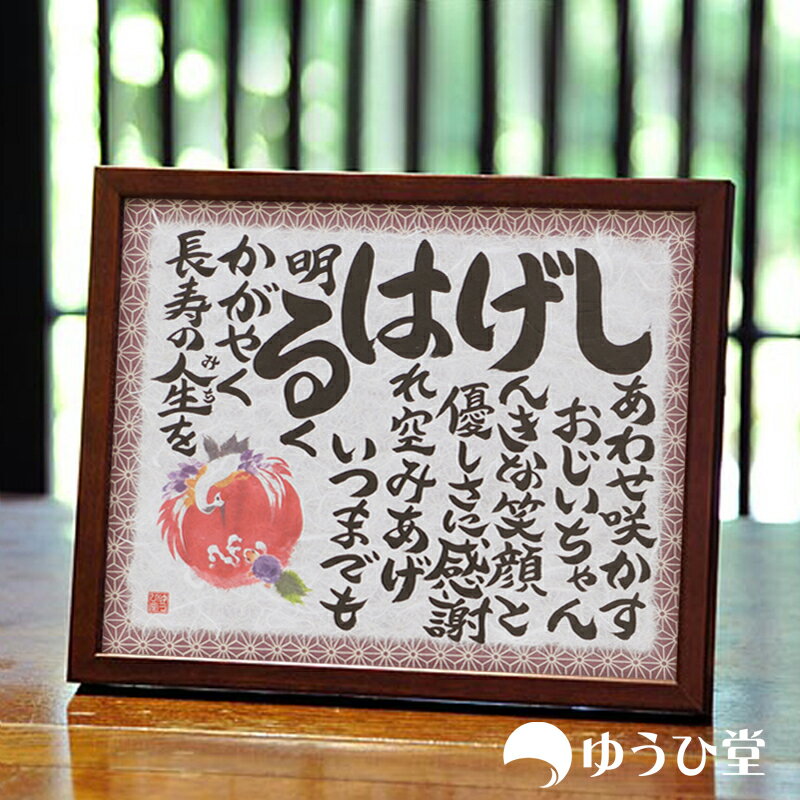 しあわせ咲かす
おじいちゃん
げんきな笑顔と
優しさに感謝
はれ空みあげ
いつまでも
明るく
かがやく
長寿の人生を
みち
ゆうひ堂